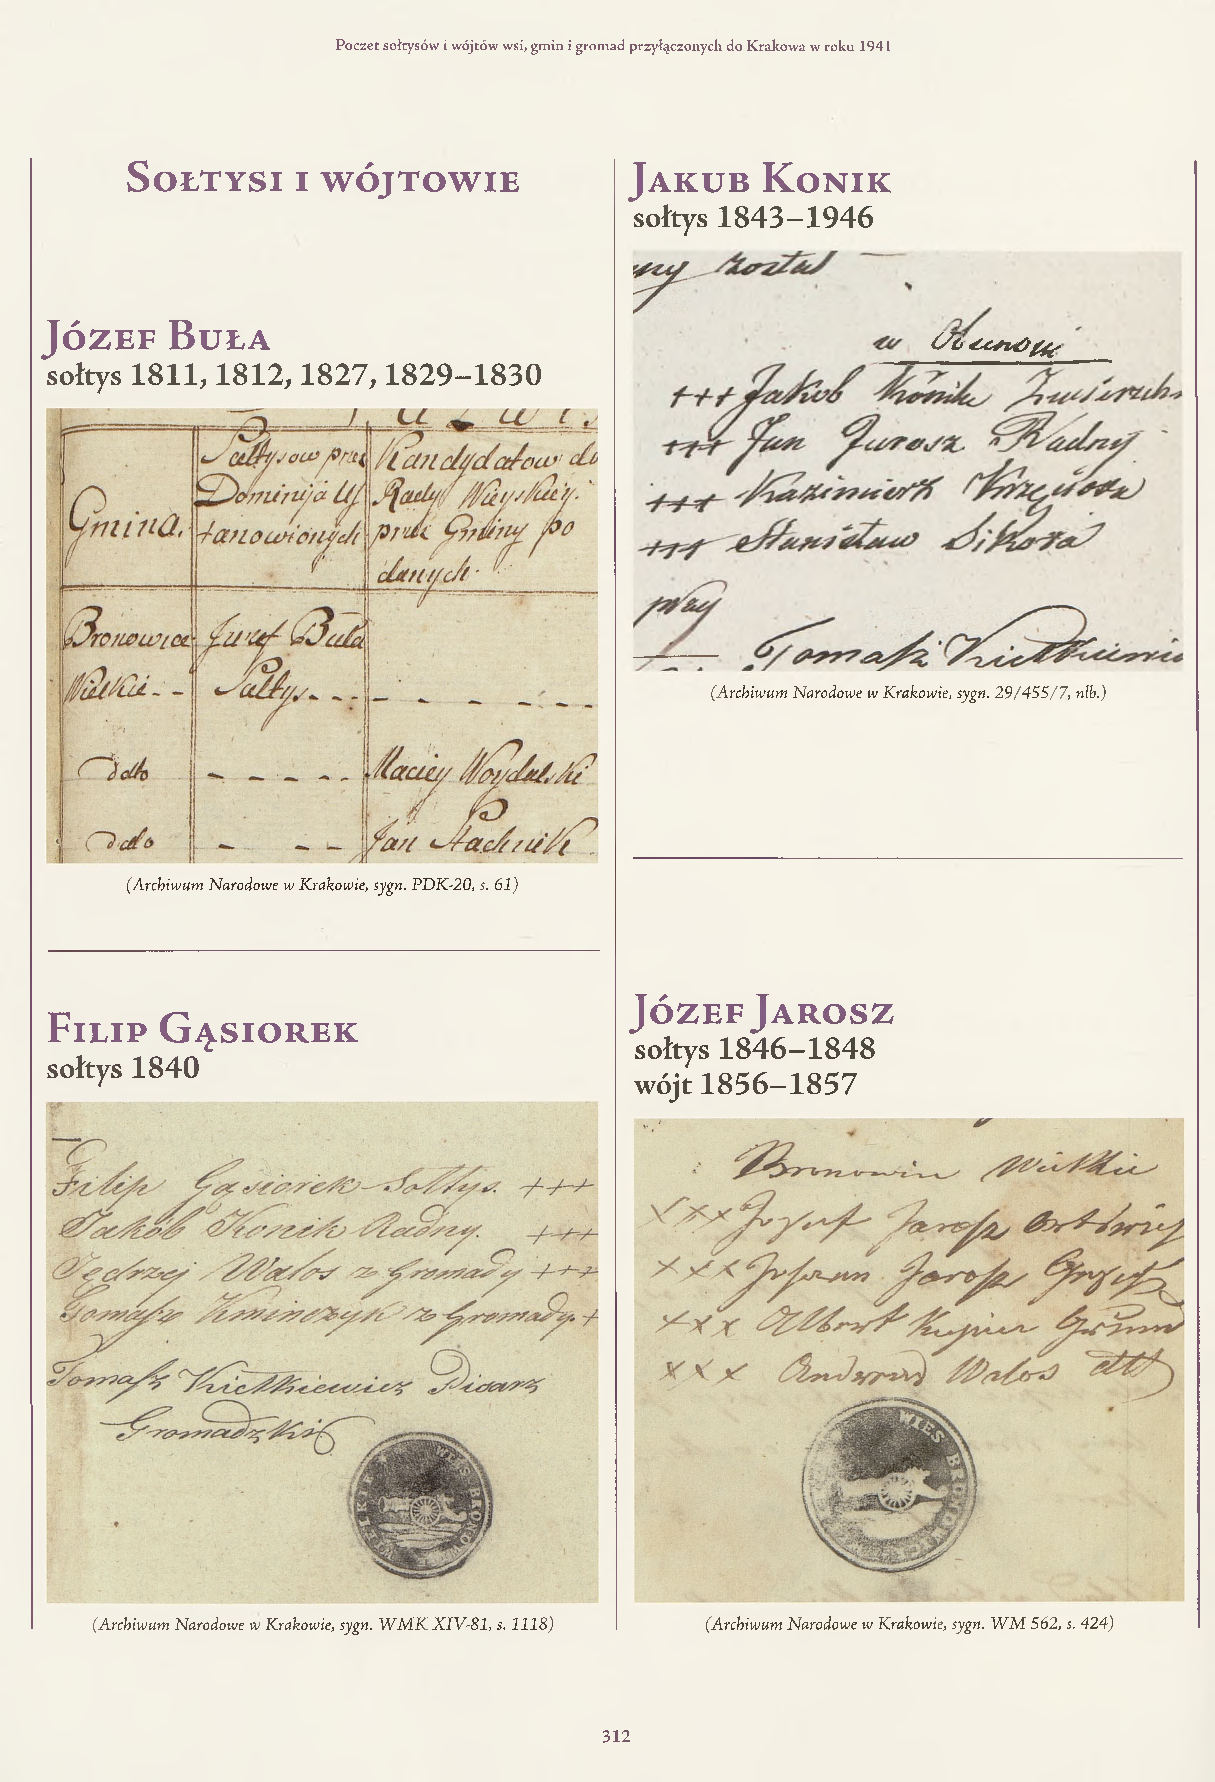 Poczet sołtysów i wójtów wsi, gmin i gromad przyłączonych do Krakowa w roku 1941
Sołtysi i wójtowie
Józef Buła
sołtys 1811, 1812, 1827, 1829–1830
Gmina.
Sołtysow przez
Dominija Us
tanowionych
Kandydatow do
Rady Wieyskiey.
przez Gminy po
danych.
Bronowice
Wielkie - -
Jozef Buła
Sołtys - - -
dało
Maciey Woydalski
dało
Jan Stachnik
(Archiwum Narodowe w Krakowie, sygn. PDK-20, s. 61)
Filip Gąsiorek
sołtys 1840
Filip Gąsiorek Sołtys. +++
Jakób Konik Radny. +++
Jędrzej Walos z Gromady +++
Tomasz Kminczyk z Gromady +
Tomasz Kietkiewicz Pisarz
Gromadzki
WIES BRONOWICE
Jakub Konik
sołtys 1843–1946
został
w
+++ Jakob Konik
+++ Jan Jarosz Radny
+++ Kazimierz
+++ Stanisław Sikora
przy
Tomasz Kietkiewic
(Archiwum Narodowe w Krakowie, sygn. 29/455/7, nlb.)
Józef Jarosz
sołtys 1846–1848
wójt 1856–1857
Bronowice Wielkie
xxx Jozef Jarosz
xxx Jarosz
xxx Albert
xxx Andreas Walos
WIES BRONOWICE
(Archiwum Narodowe w Krakowie, sygn. WMK XIV-81, s. 1118)
(Archiwum Narodowe w Krakowie, sygn. WM 562, s. 424)
312